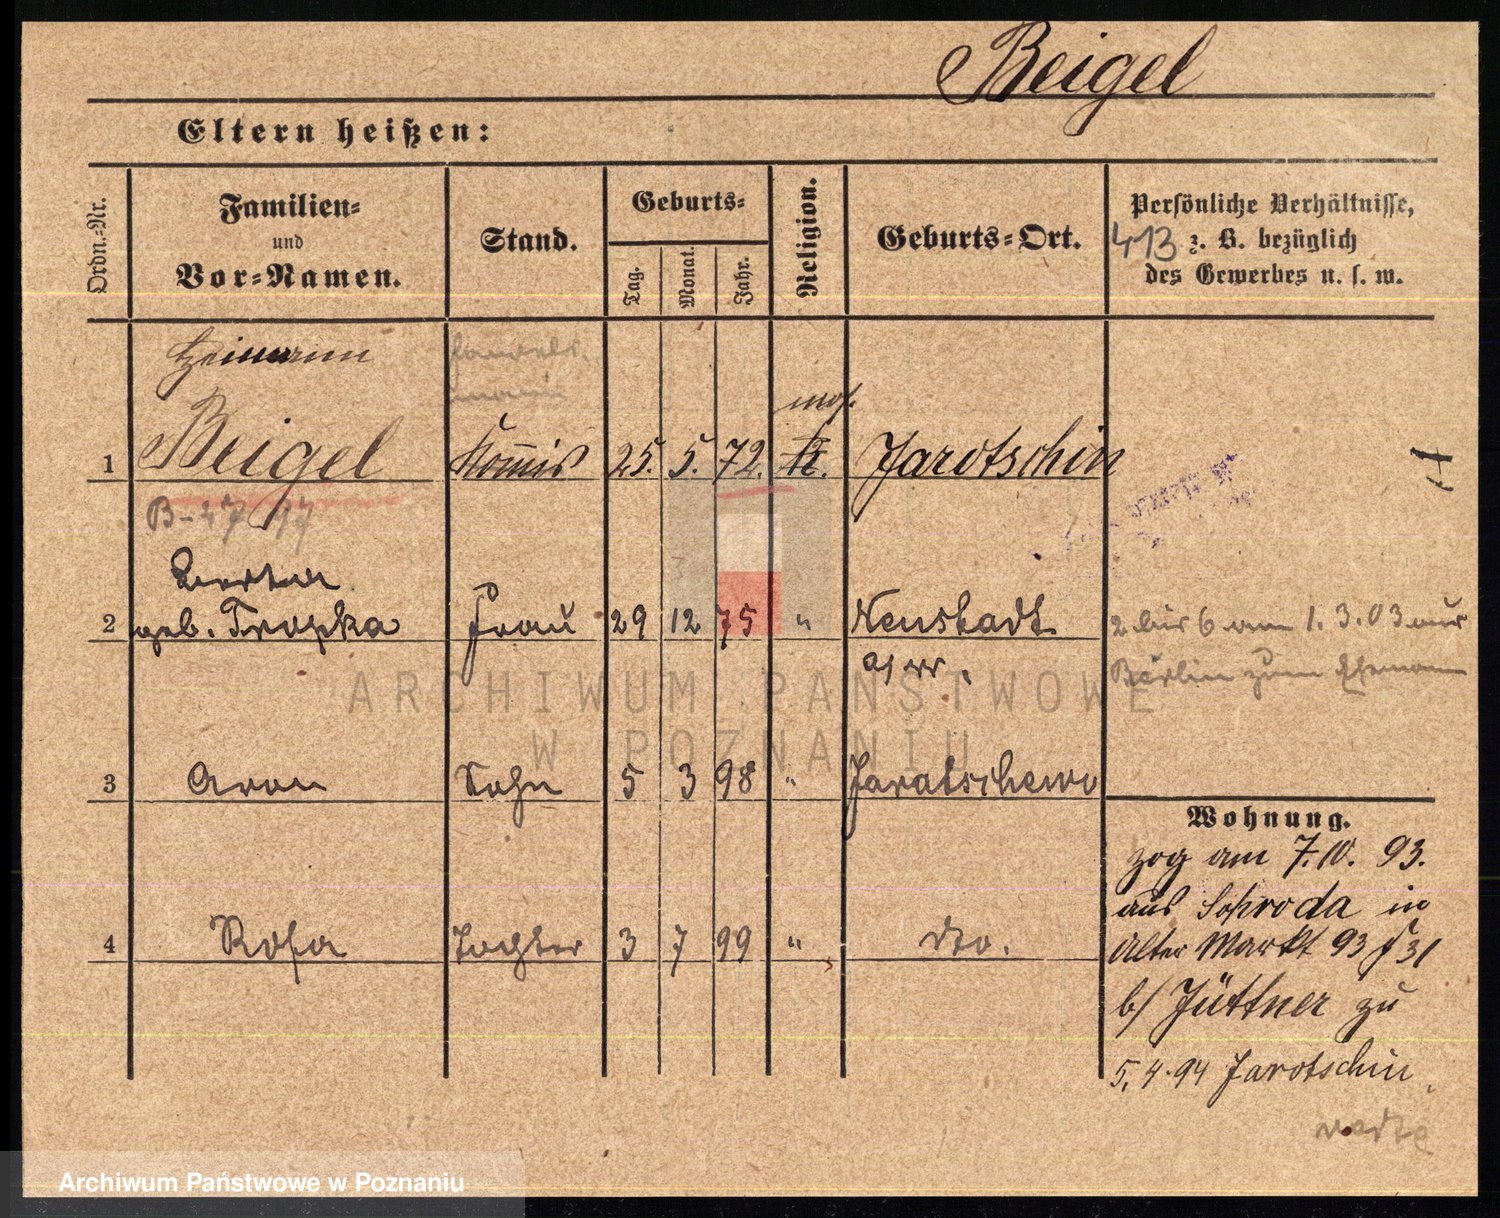 Beigel
Eltern heißen:
Ordn.-Nr.
Familien-
und
Vor-Namen.
Stand.
Geburts-
Tag.
Monat.
Jahr.
Religion.
Geburts-Ort.
Persönliche Verhältnisse,
413 z. B. bezüglich
des Gewerbes u. s. w.
Heimann
mos.
1 Beigel Kommis 25. 5. 72. Jarotschin
geb. Tropka
2 Frau 29 12 75 " Neustadt
a/W.
2 bis 6 am 1.3.03 aus
Berlin zum Ehemann
ARCHIWUM PAŃSTWOWE
W POZNANIU
3 Aron Sohn 5 3 98 " Jaratschewo
4 Rosa Tochter 3 7 99 " dto.
Wohnung.
zog am 7.10. 93.
aus Schroda in
Alter Markt 93
b/ Jüttner zu
5.4.94 Jarotschin
Archiwum Państwowe w Poznaniu